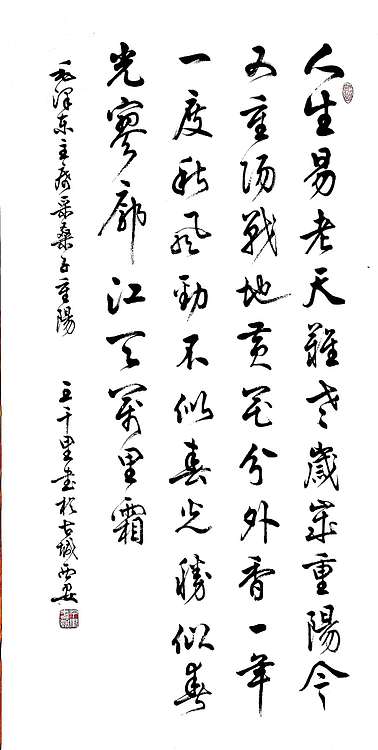 人生易老天難老歲歲重陽今
又重陽戰地黃花分外香一年
一度秋風勁不似春光勝似春
光寥廓江天萬里霜
毛澤東主席采桑子重陽 王千里書於古城西安